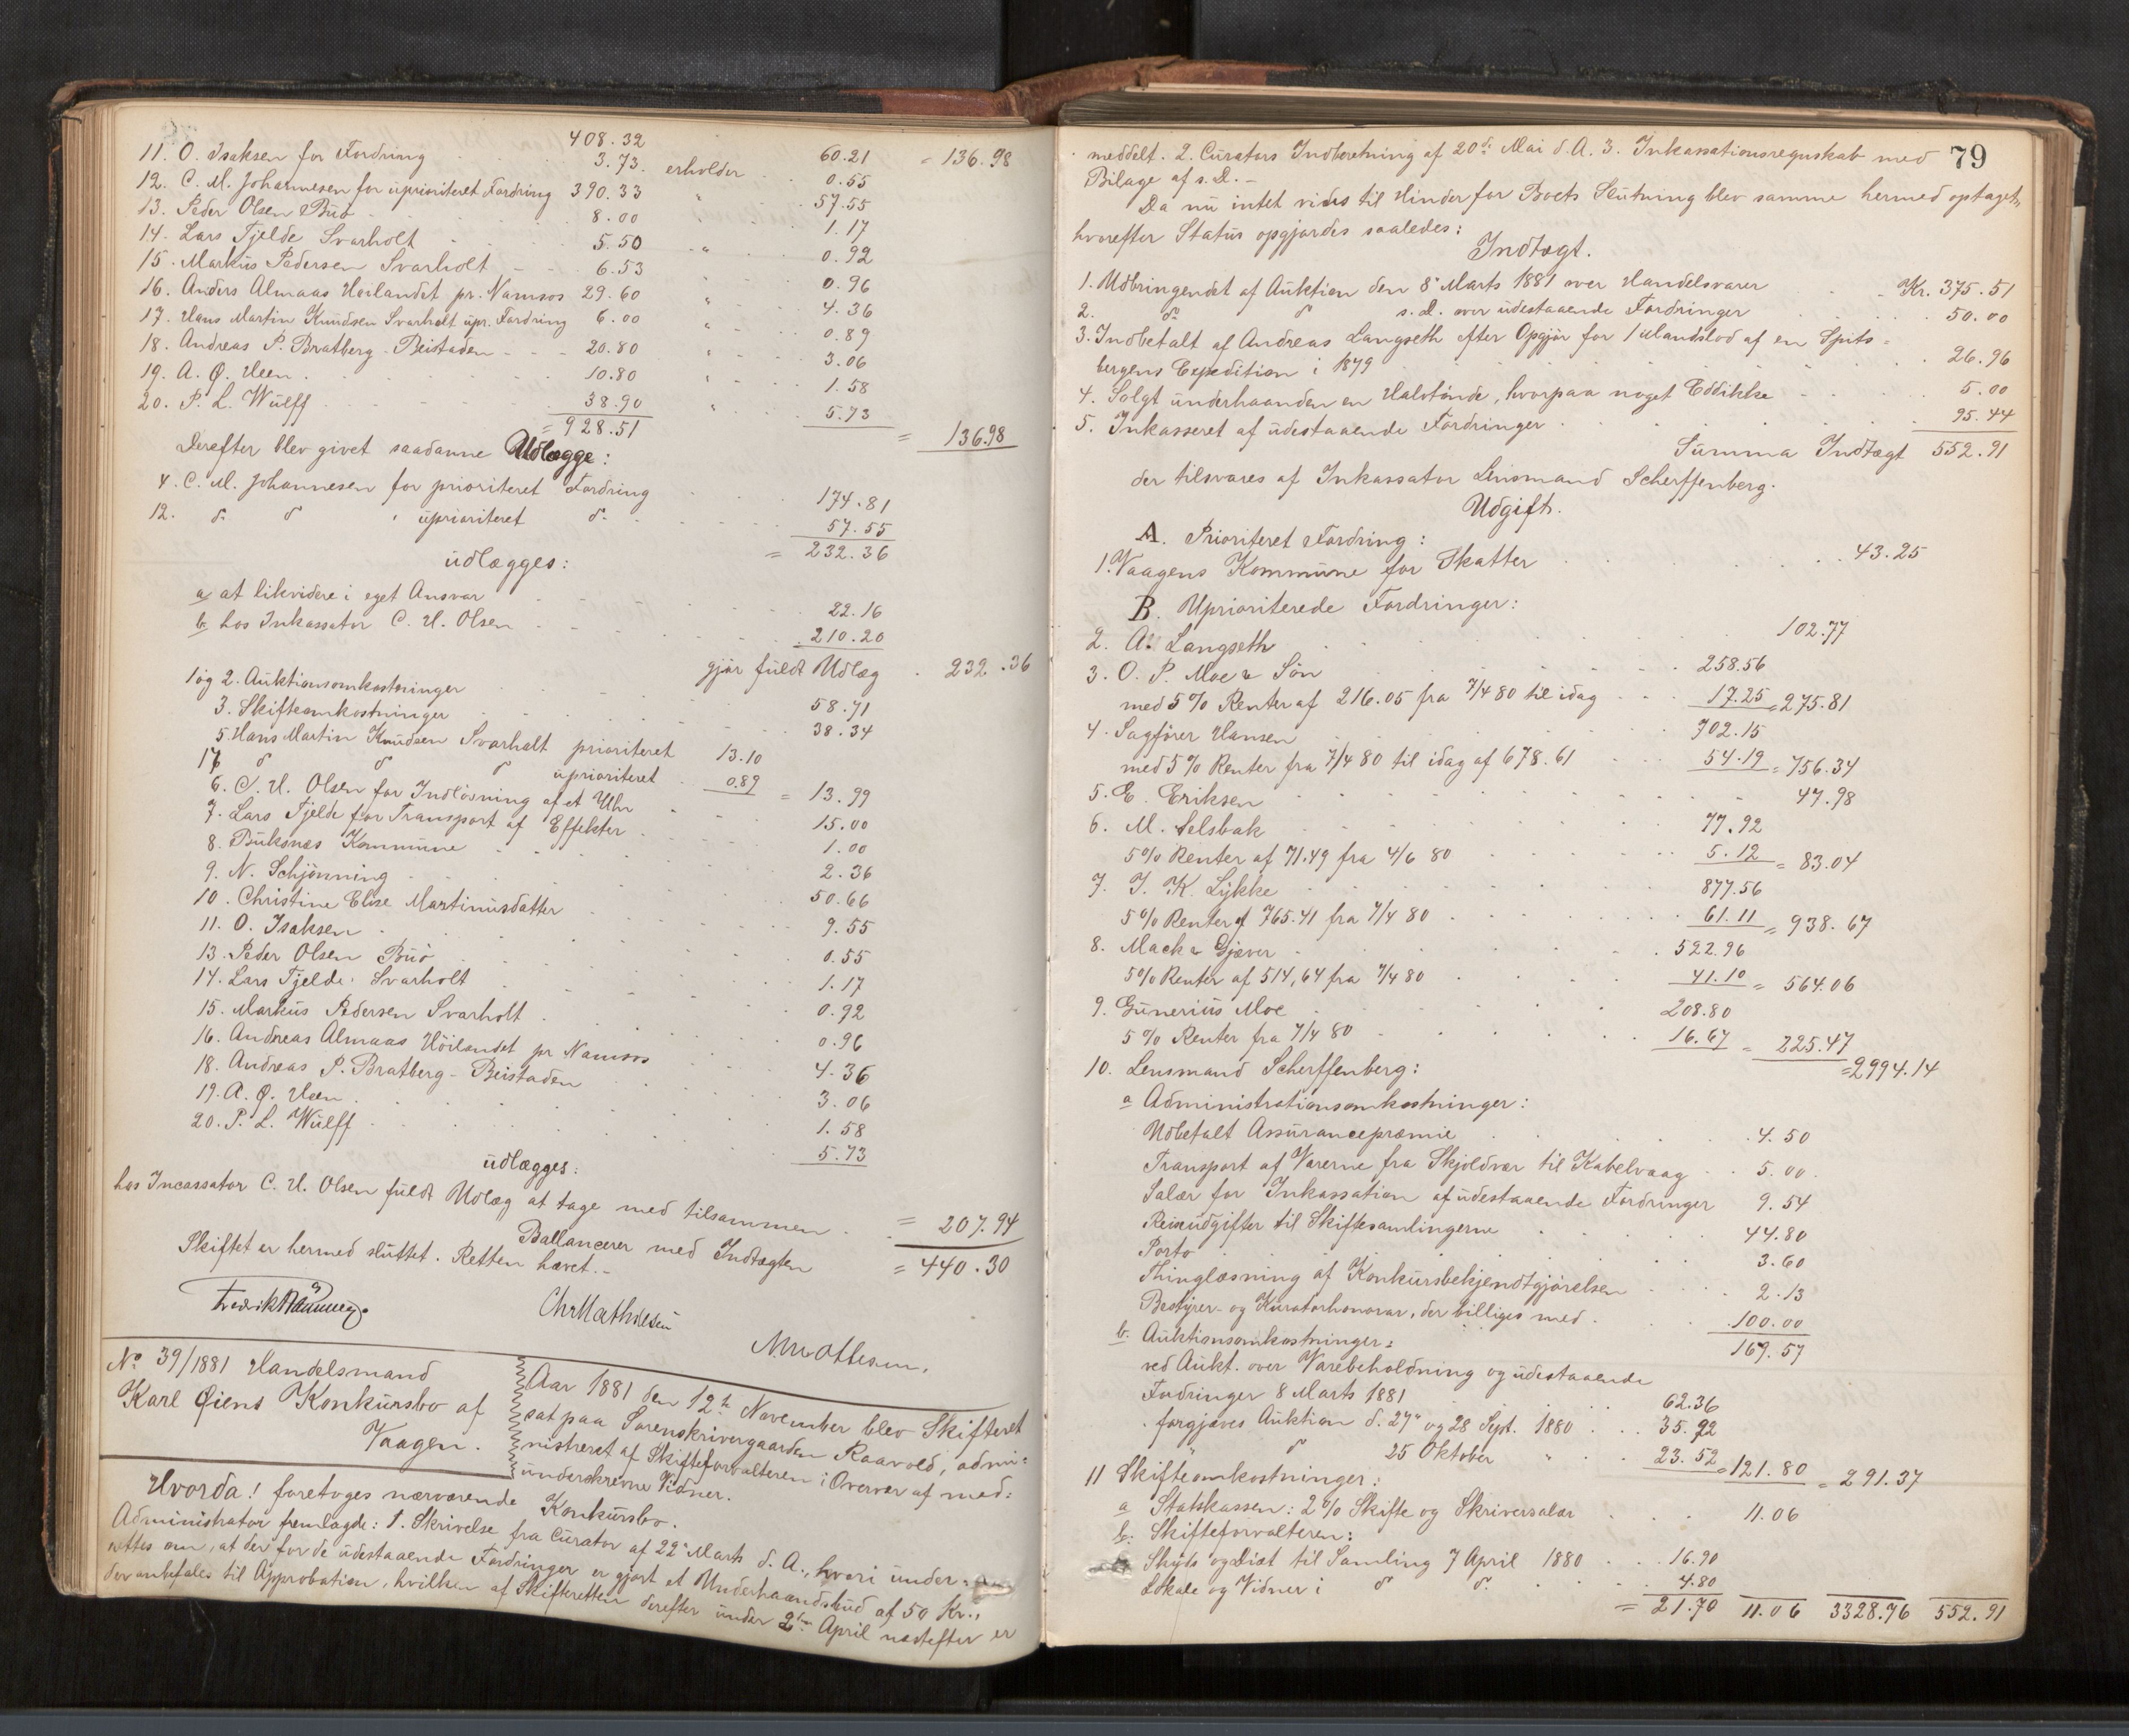 408.32 60.21 = 136.98
11. O. Isaksen for Fordring 3.73. erholder 0.55
12. C. M. Johannesen for uprioriteret Fordring 390.33 " 57.55
13. Peder Olsen Buö 8.00 1.17
14. Lars Fjelde Svarholt 5.50 " 0.92
15. Markus Pedersen Svarholt 6.53 0.96
16. Anders Almaas Høilandet pr. Namsos 29.60 " 4.36
17. Hans Martin Knudsen Svarholt upr. Fordring 6.00 " 0.89
18. Andreas P. Bratberg - Beistaden 20.80 " 3.06
19. A. Q. Veen 10.80 " 1.58
20. P. L. Wulff 38.90 " 5.73
= 928.51 = 136.98
Derefter blev givet saadanne Udlægge:
4. C. M. Johannesen for prioriteret Fordring 174.81
12. do do " uprioriteret do 57.55
udlægges: = 232.36
a at likvidere i eget Ansvar 22.16
b. hos Inkassator C. H. Olsen 210.20
gjør fuldt Udlæg 232.36
1 og 2. Auktionsomkostninger 58.71
3. Skifteomkostninger 38.34
5. Hans Martin Knudsen Svarholt prioriteret 13.10
17 do do do uprioriteret 0.89 = 13.99
6. C. H. Olsen for Indløsning af et Uhr 15.00
7. Lars Fjelde for Transport af Effekter 1.00
8. Buksnæs Kommune 2.36
9. N. Schjønning 50.66
10. Christine Elise Martinusdatter 9.55
11. O. Isaksen 0.55
13. Peder Olsen Buö 1.17
14. Lars Fjelde Svarholt 0.92
15. Markus Pedersen Svarholt 0.96
16. Andreas Almaas Höilandet pr Namsos 4.36
18. Andreas P. Bratberg - Beistaden 3.06
19. A. Q. Veen 1.58
20. P. L. Wulff 5.73
udlægges:
hos Incassator C. H. Olsen fuldt Udlæg at tage med tilsammen = 207.94
Ballancerer med Indtægten = 440.30
Skiftet er hermed sluttet. Retten hævet.-
Chr Mathiesen
No 39/1881 Handelsmand
Karl Øiens Konkursbo af
Vaagen.
Aar 1881 den 12te November blev Skifteret
sat paa Sorenskrivergaarden Raavold, admi=
nistreret af Skifteforvalteren i Overvær af med:
underskrevne Vidner.
Hvorda! foretoges nærværende Konkursbo.
Administrator fremlagde: 1. Skrivelse fra Curator af 22de Marts d. A., hvori under=
rettes om, at der for de udestaaende Fordringer er gjort et Underhaandsbud af 50 Kr.,
der anbefales til Approbation, hvilken af Skifteretten derefter under 2den April næstefter er
79
meddelt. 2. Curators Indberetning af 20de Mai d. A. 3. Inkassationsregnskab med
Bilage af s. D. -
Da nu intet vides til Hinder for Boets Slutning blev samme hermed optaget,
hvorefter Status opgjordes saaledes:
Indtægt.
1. Udbringendet af Auktion den 8de Marts 1881 over Handelsvarer Kr. 375.51
2. do do s. D. over udestaaende Fordringer 50.00
3. Indbetalt af Andreas Langseth efter Opgjør for 1 Mandslod af en Spits=
bergens Expedition i 1879 26.96
4. Solgt underhaanden en Halvtønde, hvorpaa noget Eddikke 5.00
5. Inkasseret af udestaaende Fordringer 95.44
Summa Indtægt 552.91
der tilsvares af Inkassator Lensmand Scherffenberg.
Udgift.
A. Prioriteret Fordring:
1. Vaagens Kommune for Skatter 43.25
B. Uprioriterede Fordringer:
2. A. Langseth 102.77
3. O. P. Moe & Sön 258.56
med 5% Renter af 216.05 fra 7/4 80 til idag 17.25 = 275.81
4. Sagfører Hansen 702.15
med 5% Renter fra 7/4 80 til idag af 678.61 54.19 = 756.34
5. E. Eriksen 47.98
6. M. Selsbak 77.92
5% Renter af 71.49 fra 4/6 80 5.12 = 83.04
7. I. K. Lykke 877.56
5% Renter af 765.41 fra 7/4 80 61.11 = 938.67
8. Mack & Gjæver 522.96
5% Renter af 514,64 fra 7/4 80 41.10 = 564.06
9. Gunerius Moe 208.80
5% Renter fra 7/4 80 16.67 = 225.47
= 2994.14
10. Lensmand Scherffenberg:
a Administrationsomkostninger:
Udbetalt Assurancepræmie 4.50
Transport af Varerne fra Skjoldvær til Kabelvaag 5.00
Salær for Inkassation af udestaaende Fordringer 9.54
Reiseudgifter til Skiftesamlingerne 44.80
Porto 3.60
Thinglæsning af Konkursbekjendtgjørelsen 2.13
Bestyrer- og Kuratorhonorar, der billiges med 100.00
169.57
b. Auktionsomkostninger:
ved Aukt. over Varebeholdning og udestaaende
Fordringer 8 Marts 1881 62.36
" forgjæves Auktion d. 27de og 28 Sept. 1880 35.92
" do 25 Oktober " 23.52 = 121.80 = 291.37
11 Skifteomkostninger:
a Statskassen: 2% Skifte og Skriversalær 11.06
b. Skifteforvalteren:
Skyds og Diæt til Samling 7 April 1880 16.90
Lokale og Vidner i do do 4.80
= 21.70 11.06 3328.76 552.91